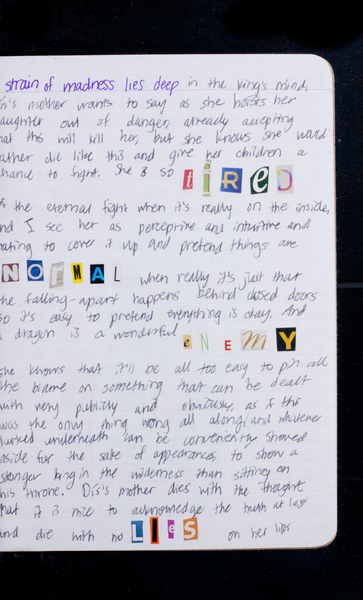 strain of madness lies deep in the king's mind,
Dis's mother wants to say as she hoists her
daughter out of danger, already accepting
that this will kill her, but she knows she would
rather die like this and give her children a
chance to fight. She is so tiRED
of the eternal fight when it's really on the inside,
and I see her as perceptive and intuitive and
hating to cover it up and pretend things are
NORMAL when really it's just that
the falling-apart happens behind closed doors
so it's easy to pretend everything is okay. And
a dragon is a wonderful eNEMY
she knows that it'll be all too easy to pin all
the blame on something that can be dealt
with very publicly and obviously, as if this
was the only thing wrong all along, and whatever
lurked underneath can be conveniently shoved
aside for the sake of appearances, to show a
stronger king in the wilderness than sitting on
his throne. Dis's mother dies with the thought
that it is nice to acknowledge the truth at last
and die with no LIeS on her lips